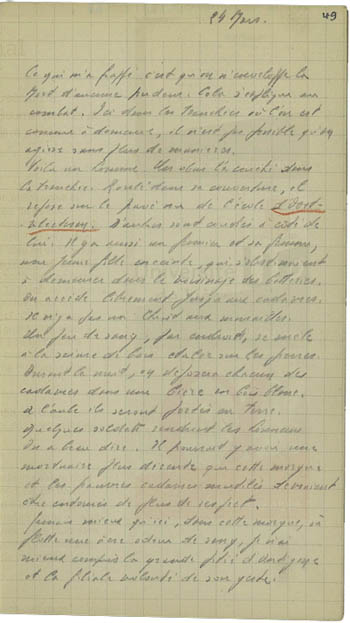 24 Mars.
49
Ce qui m'a frappé c'est qu'on n'enveloppe la
mort d'aucune pudeur. Cela s'explique au
combat. Ici dans les tranchées où l'on est
comme à demeure, il n'est pas possible qu'on
agisse sans plus de manières.
Voilà un homme. Un obus l'a couché dans
la tranchée. Roulé dans sa couverture, il
repose sur le pavé de l'école d'Oost-
vleteren. D'autres sont couchés à côté de
lui. Il y a aussi un fermier et sa femme,
une jeune fille enceinte, qui s'obstinaient
à demeurer dans le voisinage des batteries.
On accède librement jusqu'aux cadavres.
Il n'y a pas un Christ aux murailles.
Un peu de sang, par endroits, se mêle
à la sciure de bois étalée sur les pierres.
Durant la nuit, on déposera chacun des
cadavres dans une bière en bois blanc.
A l'aube ils seront portés en terre.
Quelques soldats rendront les honneurs.
On a beau dire. Il pourrait y avoir une
mortuaire plus décente que cette morgue
et les pauvres cadavres mutilés devraient
être entourés de plus de respect.
Jamais mieux qu'ici, dans cette morgue, où
flotte une âcre odeur de sang, je n'ai
mieux compris la grande pitié d'Antigone
et la filiale volonté de son geste.